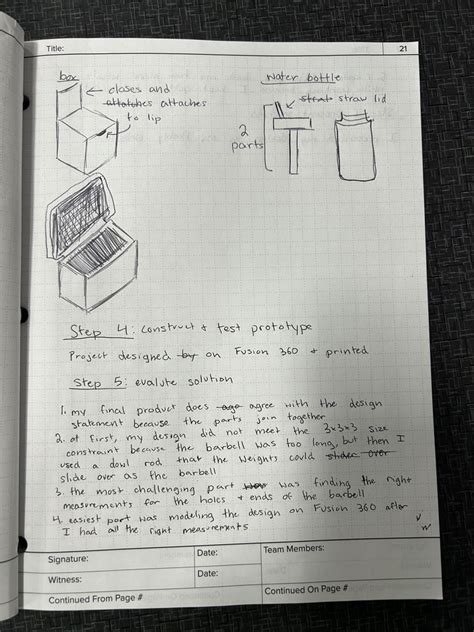 Title:
21
box
closes and
attatches attaches
to lip
water bottle
straw lid
2
parts
Step 4: construct + test prototype
Project designed by on Fusion 360 + printed
Step 5: evalute solution
1. my final product does ago agree with the design
statement because the parts join together
2. at first, my design did not meet the 3x3x3 size
constraint because the barbell was too long, but then I
used a dowl rod that the weights could slider over
slide over as the barbell
3. the most challenging part was finding the right
measurements for the holes + ends of the barbell
4. easiest part was modeling the design on Fusion 360 after
I had all the right measurements
Signature:
Date:
Team Members:
Witness:
Date:
Continued From Page #
Continued On Page #